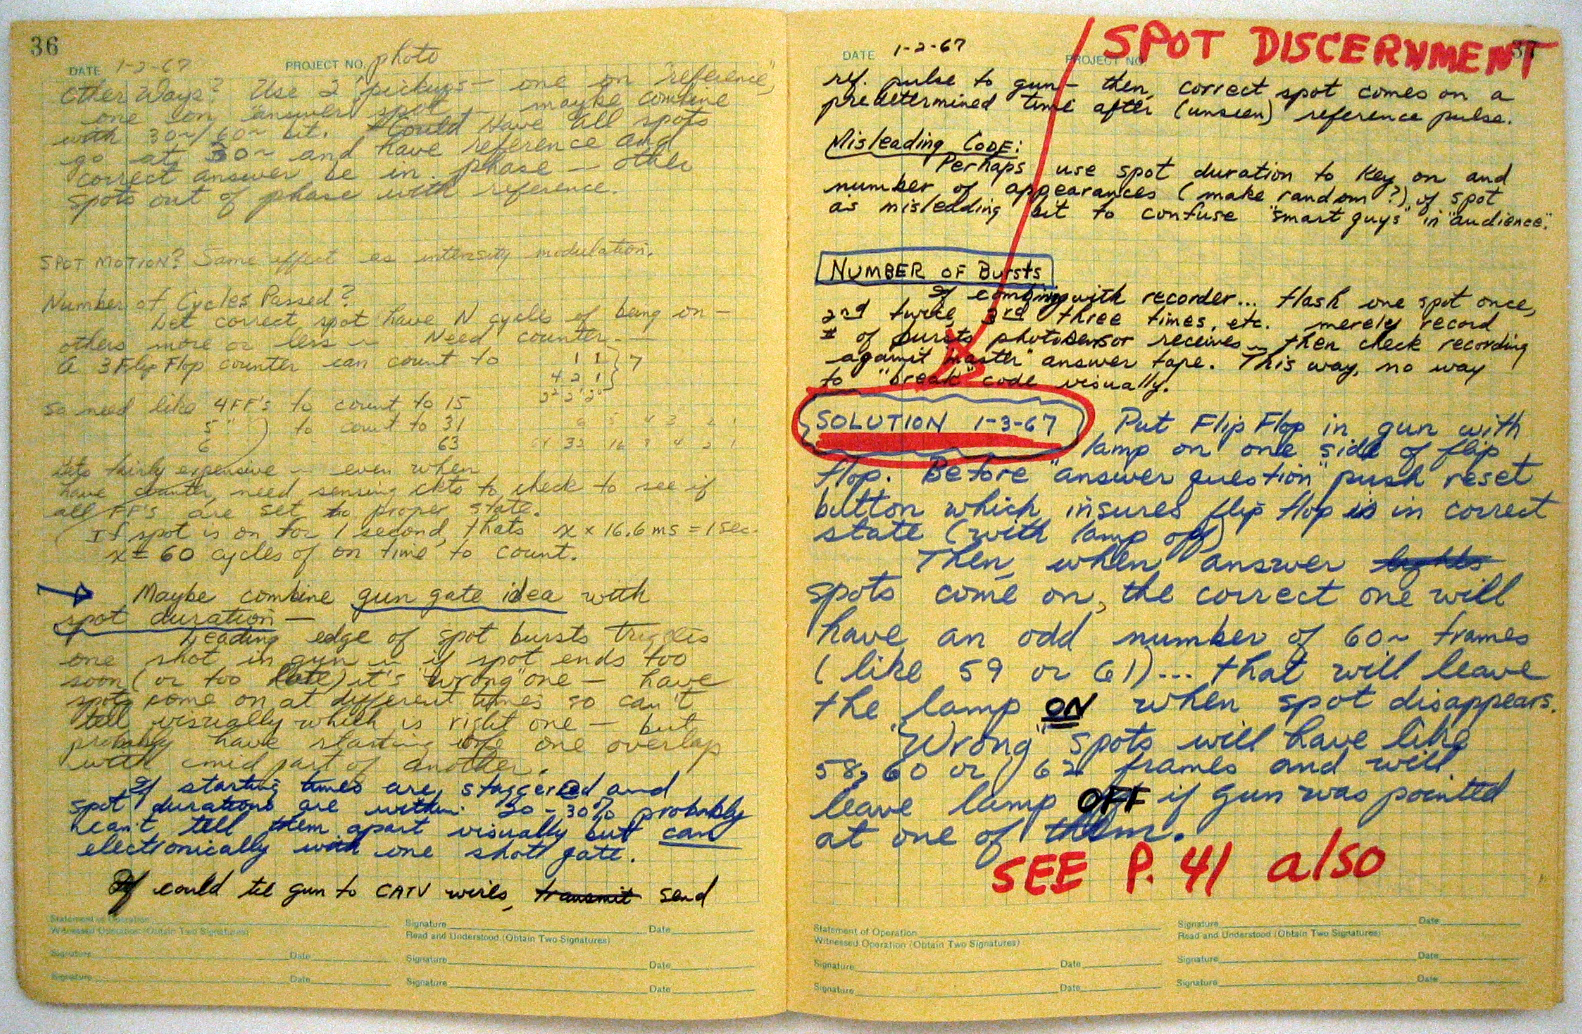 36
DATE 1-2-67 PROJECT NO. photo
Other Ways? Use 2 pickups — one on "reference",
one on "answer" spot — maybe combine
with 30~/60~ bit. Could Have all spots
go at 30~ and have reference and
correct answer be in phase — other
spots out of phase with reference.
SPOT MOTION? Same effect as intensity modulation.
Number of Cycles Passed?
Let correct spot have N cycles of being on —
others more or less ~ Need counter. —
A 3 Flip Flop counter can count to 1 1 } 7
4 2 1
2² 2¹ 2⁰
so need like 4FF's to count to 15
5 " ) to count to 31
6 63 64 32 16 8 4 2 1
Gets fairly expensive ~ even when
have counter, need sensing ckts to check to see if
all FF's are set to proper state.
If spot is on for 1 second, thats x × 16.6 ms = 1 sec.
x = 60 cycles of on time to count.
→ Maybe combine gun gate idea with
spot duration —
Leading edge of spot bursts triggers
one shot in gun ~ if spot ends too
soon (or too late) it's "wrong" one — have
spots come on at different times so can't
tell visually which is right one — but
probably have starting of one overlap
with mid part of another.
If starting times are staggered and
spot durations are within 20-30% probably
can't tell them apart visually but can
electronically with one shot gate.
If could tie gun to CATV wires, transmit send
Statement of Operation
Witnessed Operation (Obtain Two Signatures)
Signature Date
Read and Understood (Obtain Two Signatures)
Signature Date Signature Date
Signature Date Signature Date
SPOT DISCERNMENT
37
DATE 1-2-67 PROJECT NO.
ref. pulse to gun — then correct spot comes on a
predetermined time after (unseen) reference pulse.
Misleading CODE:
Perhaps use spot duration to key on and
number of appearances (make random?) of spot
as misleading bit to confuse "smart guys" in "audience".
NUMBER OF Bursts
If combining with recorder... flash one spot once,
2nd twice, 3rd three times, etc. merely record
# of bursts photosensor receives ~ then check recording
against "master" answer tape. This way, no way
to "break" code visually.
SOLUTION 1-3-67 Put Flip Flop in gun with
lamp on one side of flip
flop. Before "answer question" push reset
button which insures flip flop is in correct
state (with lamp off)
Then, when answer lights
spots come on, the correct one will
have an odd number of 60~ frames
(like 59 or 61)... that will leave
the lamp ON when spot disappears.
"Wrong" spots will have like
58, 60 or 62 frames and will
leave lamp OFF if gun was pointed
at one of them.
SEE P. 41 also
Statement of Operation
Witnessed Operation (Obtain Two Signatures)
Signature Date
Read and Understood (Obtain Two Signatures)
Signature Date Signature Date
Signature Date Signature Date